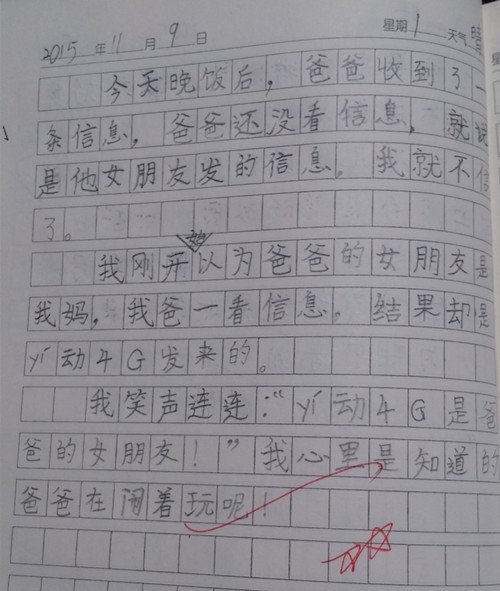 2015年11月9日 星期1 天气晴
今天晚饭后，爸爸收到了一
条信息，爸爸还没看信息，就说
是他女朋友发的信息。我就不信
了。
我刚开始以为爸爸的女朋友是
我妈，我爸一看信息，结果却是
yí动4G发来的。
我笑声连连：“yí动4G是爸
爸的女朋友！”我心里是知道的
爸爸在闹着玩呢！